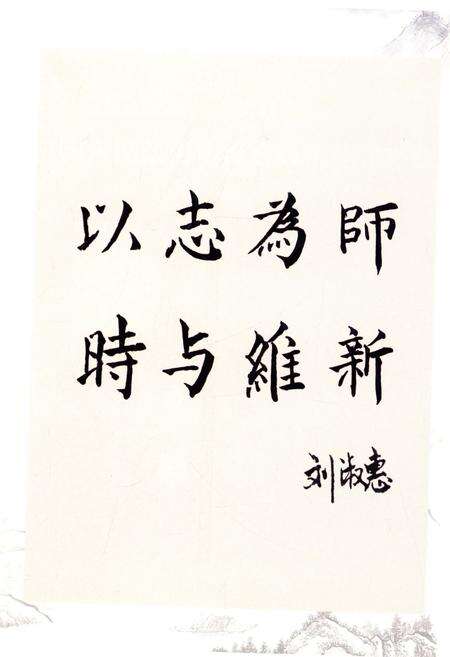 以志為師
時与維新
刘淑惠